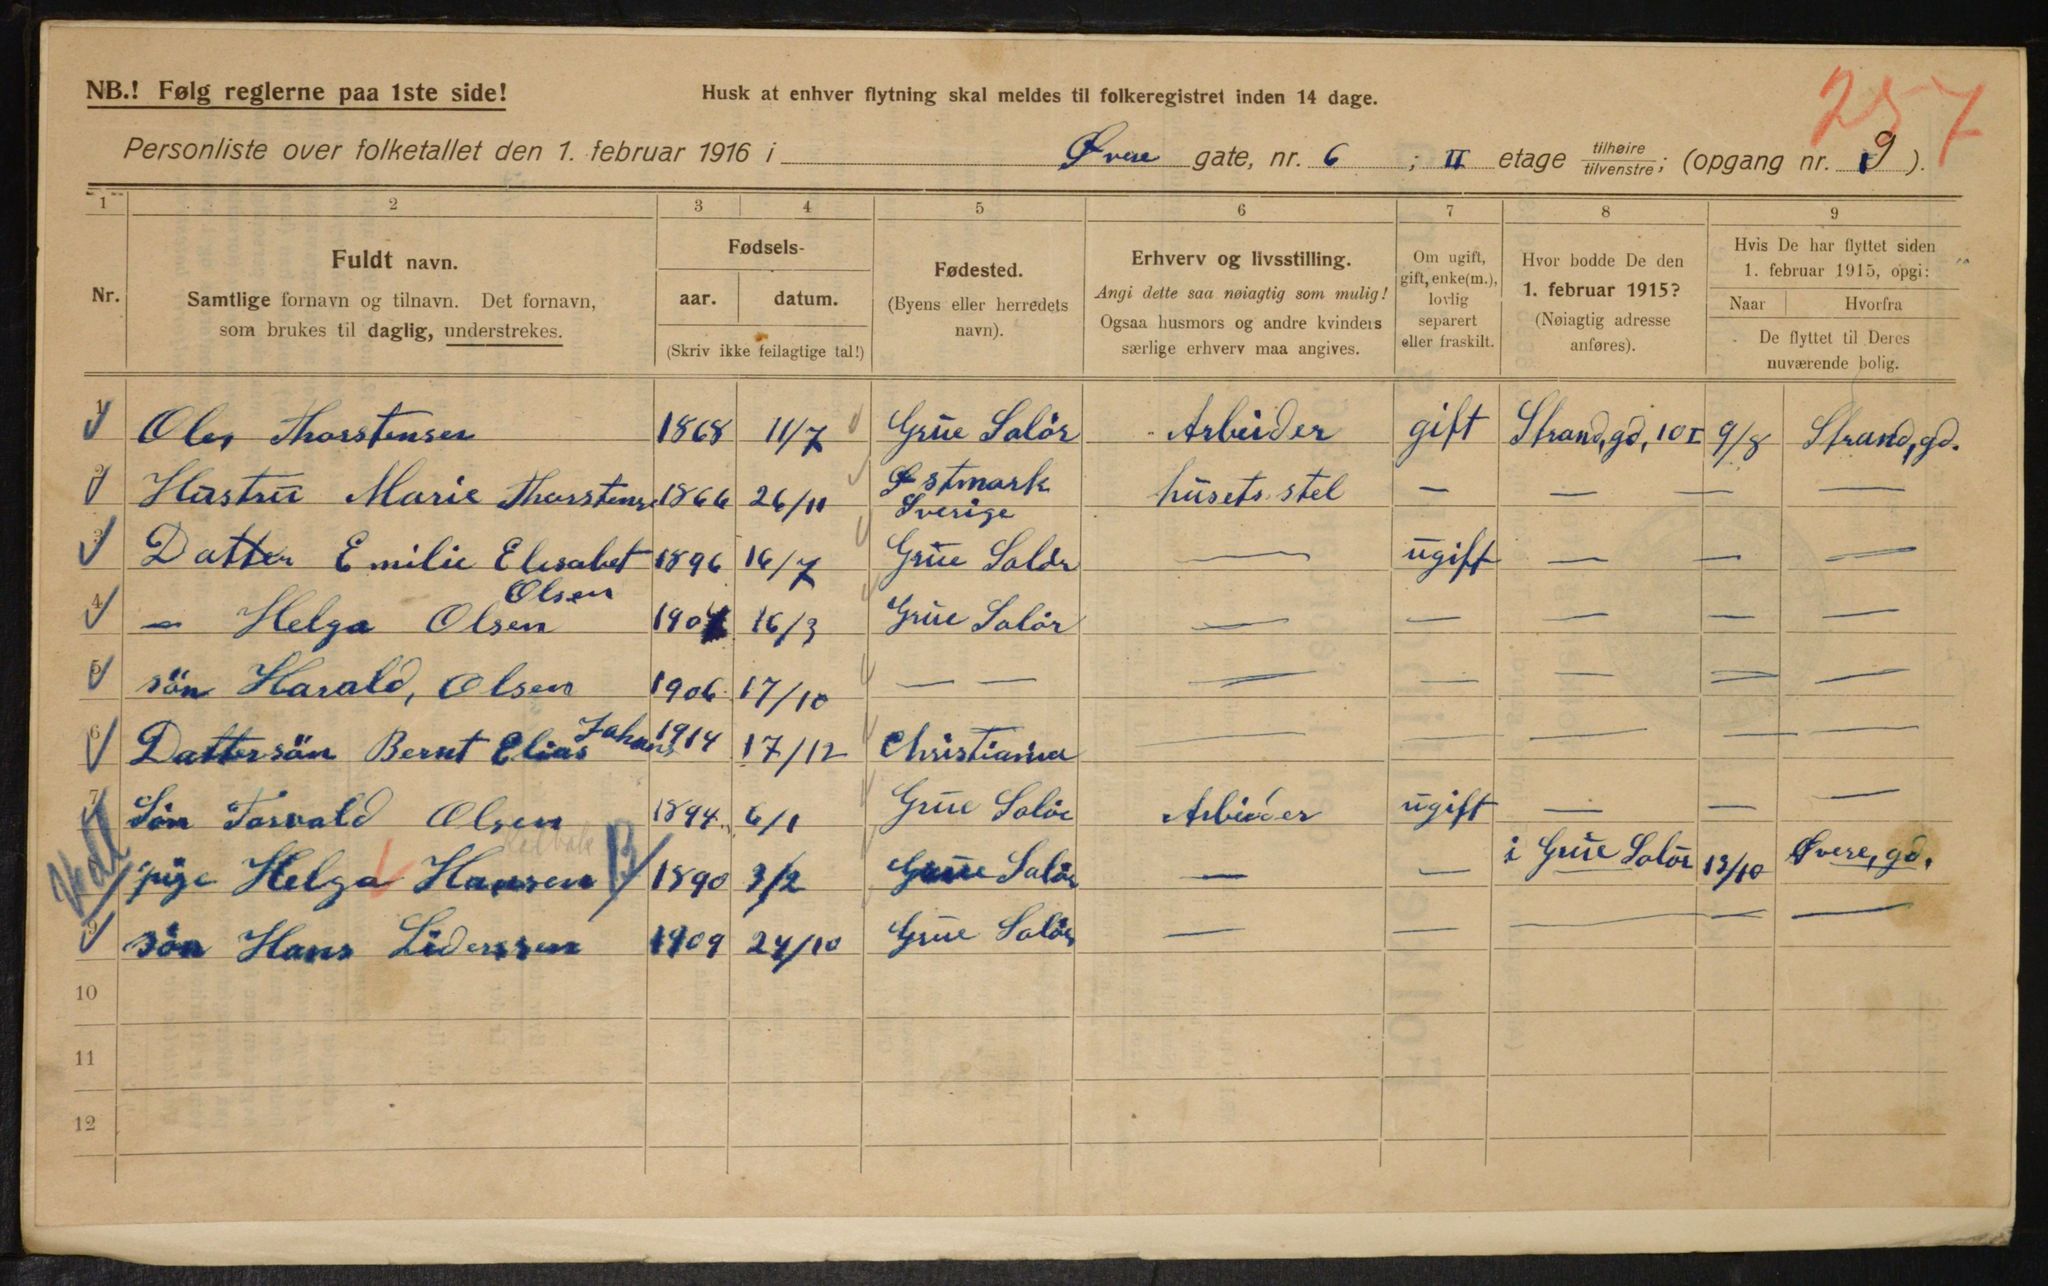 NB.! Følg reglerne paa 1ste side!
Husk at enhver flytning skal meldes til folkeregistret inden 14 dage.
257
Personliste over folketallet den 1. februar 1916 i Øvere gate, nr. 6 ; II etage tilhøire/tilvenstre; (opgang nr. 9 ).
1 2 3 4 5 6 7 8 9
Nr.
Fuldt navn.
Samtlige fornavn og tilnavn. Det fornavn,
som brukes til daglig, understrekes.
Fødsels-
aar. datum.
(Skriv ikke feilagtige tal!)
Fødested.
(Byens eller herredets
navn).
Erhverv og livsstilling.
Angi dette saa nøiagtig som mulig!
Ogsaa husmors og andre kvinders
særlige erhverv maa angives.
Om ugift,
gift, enke(m.),
lovlig
separert
eller fraskilt.
Hvor bodde De den
1. februar 1915?
(Nøiagtig adresse
anføres).
Hvis De har flyttet siden
1. februar 1915, opgi:
Naar Hvorfra
De flyttet til Deres
nuværende bolig.
1 Ole Thorstensen 1868 11/7 Grüe Solör Arbeider gift Strand,gd, 10 I 9/8 Strand,gd.
2 Hüstrü Marie Thorstense 1866 26/11 Østmark Sverige hüsets stel — — — —
3 Datter Emilie Elisabet Olsen 1896 16/7 Grüe Solör — ügift — — —
4 — Helga Olsen 1904 16/3 Grüe Solör — — — — —
5 sön Harald, Olsen 1906 17/10 — — — — — — —
6 Dattersön Bernt Elias Johans 1914 17/12 Christiania — — — — —
7 Sön Torvald Olsen 1894 6/1 Grüe Solör Arbeider ügift — — —
pige Helga Hansen 1890 3/2 Grüe Solör — — i Grüe Solör 13/10 Øvere, gd.
9 sön Hans Liderssen 1909 24/10 Grüe Solör — — — — —
10
11
12